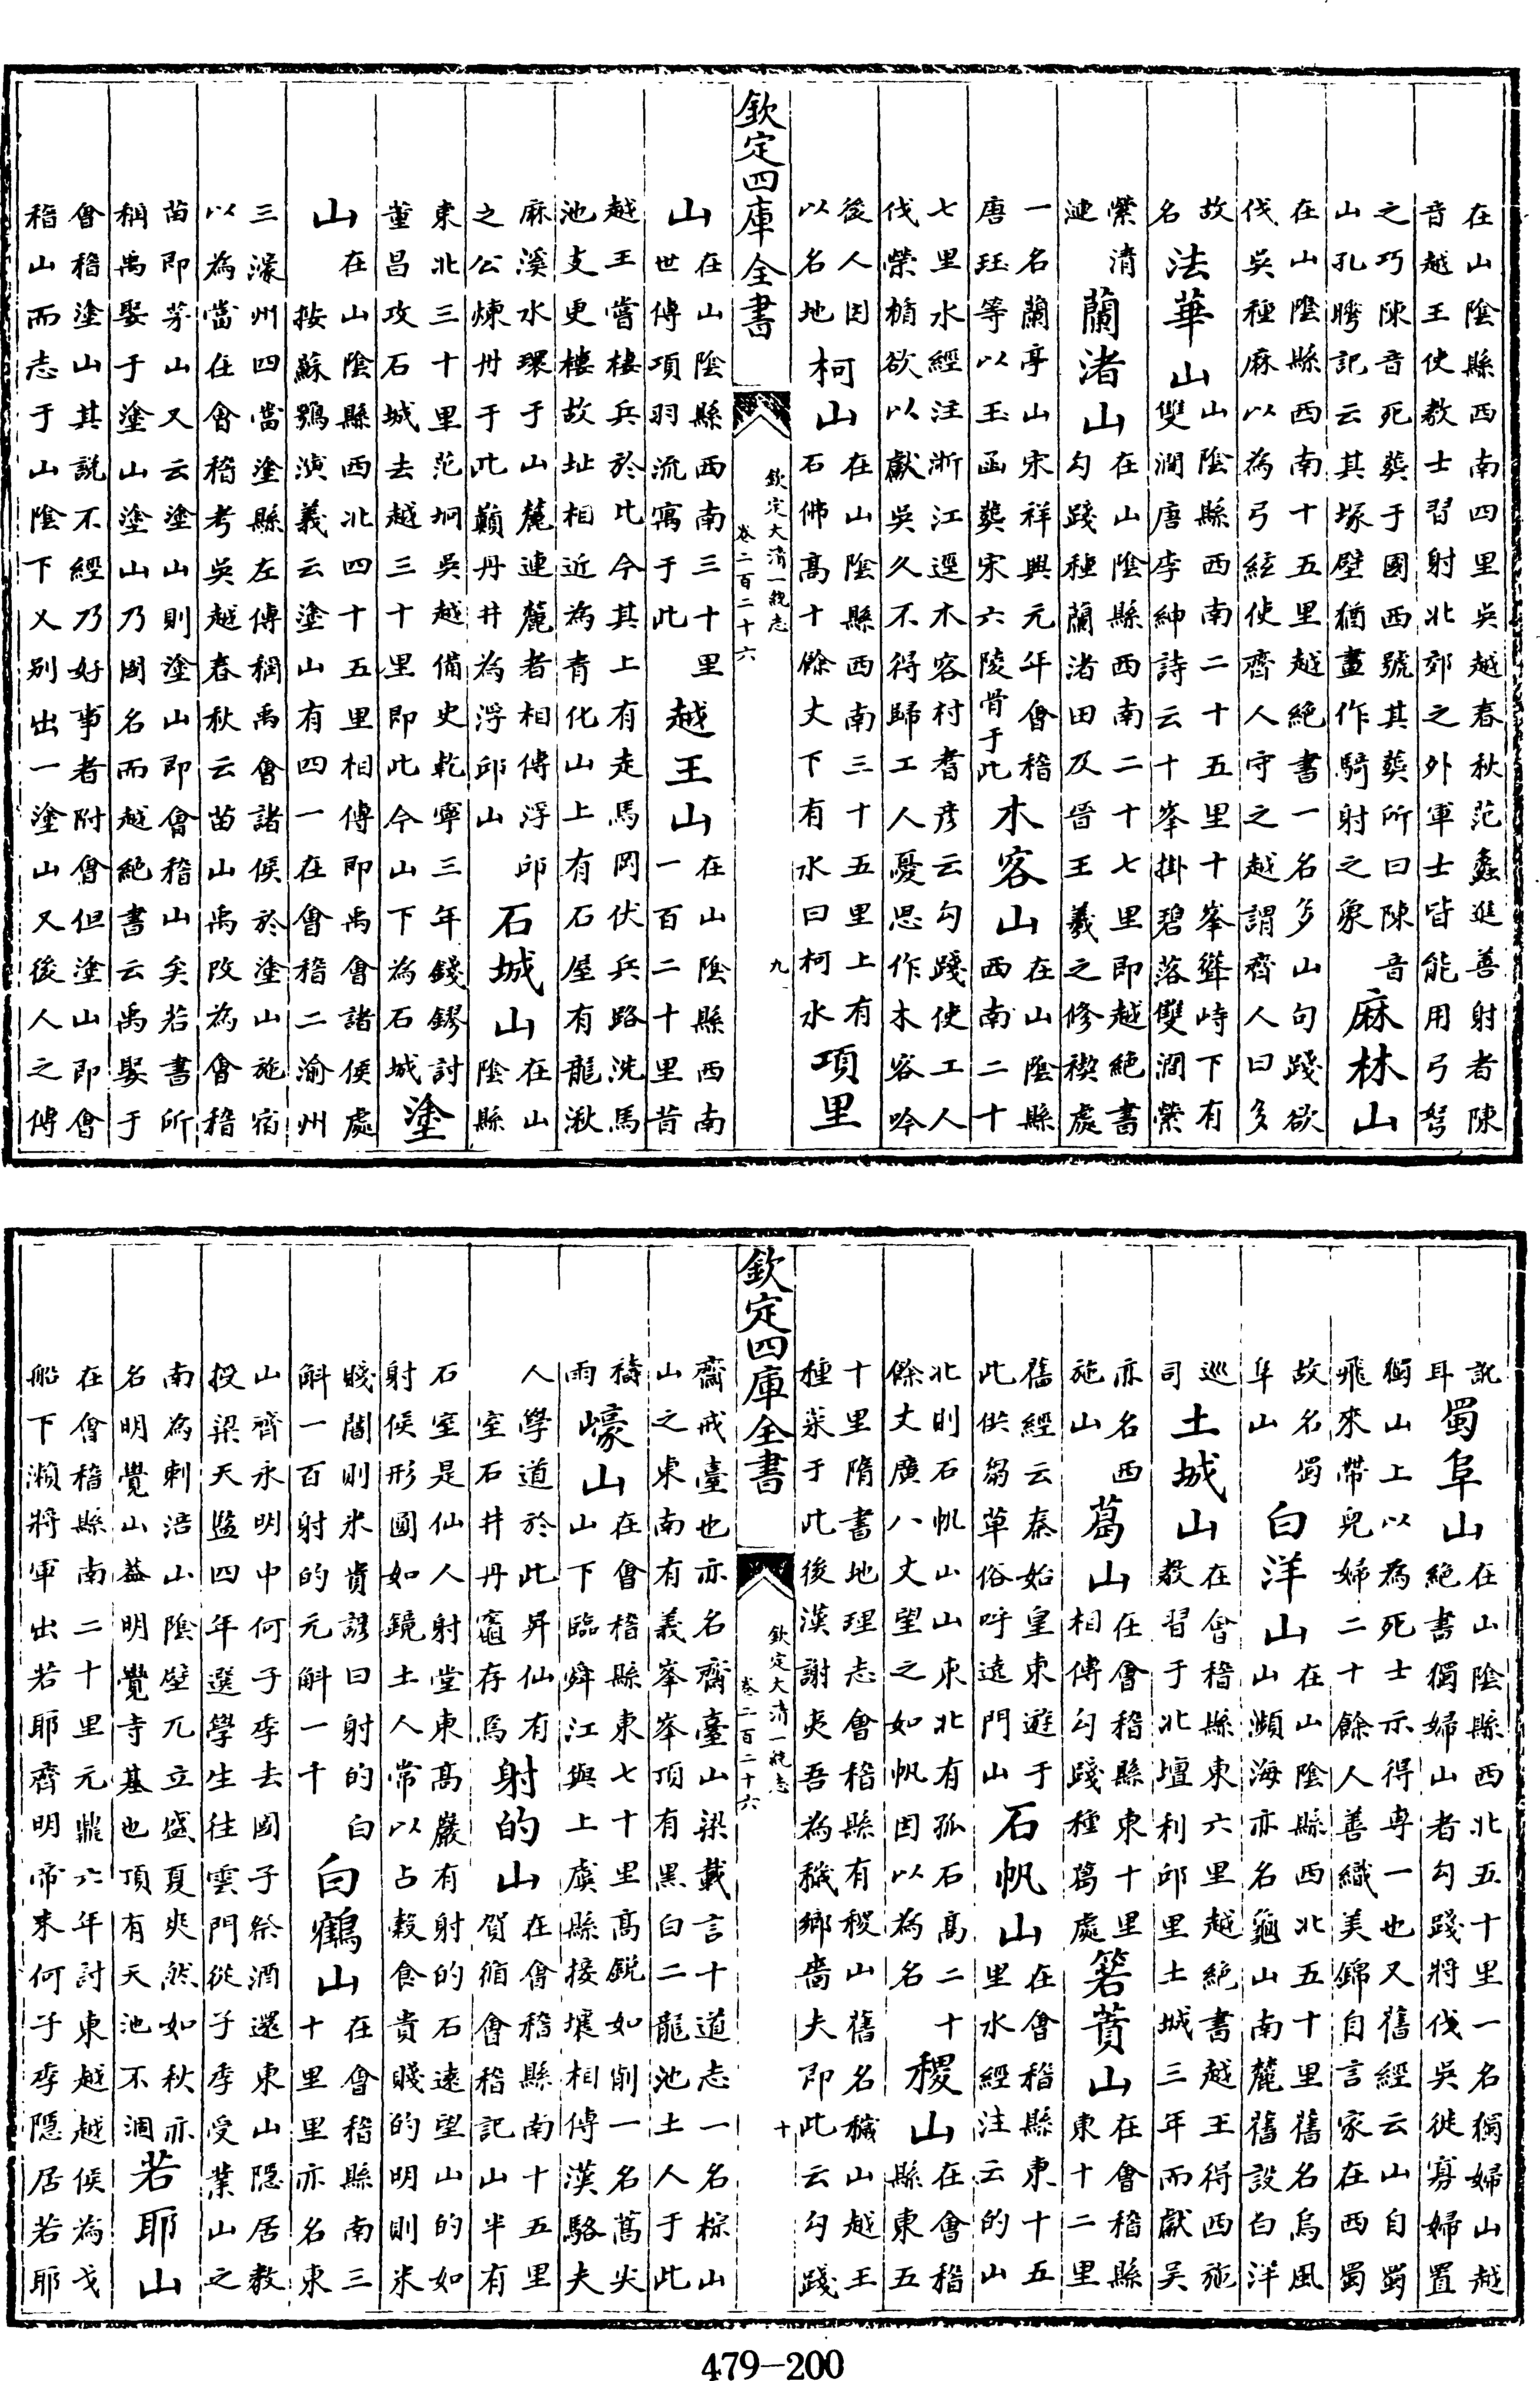 在山陰縣西南四里吳越春秋范蠡進善射者陳
音越王使教士習射北郊之外軍士皆能用弓弩
之巧陳音死葬于國西號其葬所曰陳音
山孔曄記云其塚壁猶畫作騎射之象
麻林山
在山陰縣西南十五里越絕書一名多山句踐欲
伐吳種麻以為弓絃使齊人守之越謂齊人曰多
故
名
法華山
山陰縣西南二十五里十峯聳峙下有
雙澗唐李紳詩云十峯掛碧落雙澗縈
縈清
漣
蘭渚山
在山陰縣西南二十七里即越絕書
勾踐種蘭渚田及晉王羲之修禊處
一名蘭亭山宋祥興元年會稽
唐珏等以玉函葬宋六陵骨于此
木客山
在山陰縣
西南二十
七里水經注浙江逕木客村耆彥云勾踐使工人
伐榮楯欲以獻吳久不得歸工人憂思作木客吟
後人因
以名地
柯山
在山陰縣西南三十五里上有
石佛高十餘丈下有水曰柯水
項里
欽定四庫全書
欽定大清一統志
卷二百二十六
九
山
在山陰縣西南三十里
世傳項羽流寓于此
越王山
在山陰縣西南
一百二十里昔
越王嘗棲兵於此今其上有走馬岡伏兵路洗馬
池支更樓故址相近為青化山上有石屋有龍湫
麻溪水環于山麓連麓者相傳浮邱
之公煉丹于此巔丹井為浮邱山
石城山
在山
陰縣
東北三十里范坰吳越備史乾寧三年錢鏐討
董昌攻石城去越三十里即此今山下為石城
塗
山
在山陰縣西北四十五里相傳即禹會諸侯處
按蘇鶚演義云塗山有四一在會稽二渝州
三濠州四當塗縣左傳稱禹會諸侯於塗山施宿
以為當在會稽考吳越春秋云苗山禹改為會稽
苗即茅山又云塗山則塗山即會稽山矣若書所
稱禹娶于塗山塗山乃國名而越絕書云禹娶于
會稽塗山其說不經乃好事者附會但塗山即會
稽山而志于山陰下又别出一塗山又後人之傅
訛
耳
蜀阜山
在山陰縣西北五十里一名獨婦山越
絕書獨婦山者勾踐將伐吳徙寡婦置
獨山上以為死士示得專一也又舊經云山自蜀
飛來帶兒婦二十餘人善織美錦自言家在西蜀
故名蜀
阜山
白洋山
在山陰縣西北五十里舊名烏風
山瀕海亦名龜山南麓舊設白洋
巡
司
土城山
在會稽縣東六里越絕書越王得西施
教習于北壇利邱里土城三年而獻吳
亦名西
施山
葛山
在會稽縣東十里
相傳勾踐種葛處
箬蕢山
在會稽縣
東十二里
舊經云秦始皇東遊于
此供芻草俗呼遠門山
石帆山
在會稽縣東十五
里水經注云的山
北則石帆山山東北有孤石高二十
餘丈廣八丈望之如帆因以為名
稷山
在會稽
縣東五
十里隋書地理志會稽縣有稷山舊名穢山越王
種菜于此後漢謝夷吾為穢鄉嗇夫即此云勾踐
欽定四庫全書
欽定大清一統志
卷二百二十六
十
齋戒臺也亦名齋臺山梁載言十道志一名棕山
山之東南有義峯峯頂有黑白二龍池土人于此
禱
雨
㠙山
在會稽縣東七十里高銳如削一名蒿尖
山下臨舜江與上虞縣接壤相傳漢駱夫
人學道於此昇仙有
室石井丹竈存焉
射的山
在會稽縣南十五里
賀循會稽記山半有
石室是仙人射堂東高巖有射的石遠望山的如
射侯形圓如鏡土人常以占穀食貴賤的明則米
賤闇則米貴諺曰射的白
斛一百射的元斛一千
白鶴山
在會稽縣南三
十里里亦名東
山齊永明中何子季去國子祭酒還東山隱居教
授梁天監四年選學生往雲門從子季受業山之
南為刺涪山陰壁兀立盛夏爽然如秋亦
名明覺山蓋明覺寺基也頂有天池不涸
若耶山
在會稽縣南二十里元鼎六年討東越越侯為戈
船下瀨將軍出若耶齊明帝末何子季隱居若耶
479-200